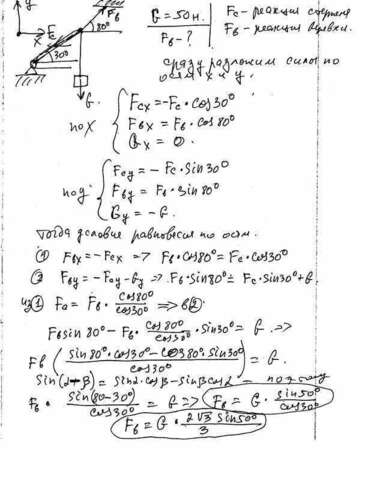 y
x
Fc
Fв
80°
30°
G.
G = 50н.
Fв - ?
Fc - реакция стержня
Fв - реакция верёвки.
сразу разложим силы по
осям x и y.
по x { Fcx = -Fc · cos30°
Fвx = Fв · cos80°
Gx = 0.
по y { Fcy = - Fc · Sin30°
Fвy = Fв · Sin80°
Gy = -G.
Тогда условие равновесия по осям.
① Fвx = -Fcx => Fв · cos80° = Fc · cos30°
② Fвy = -Fcy - Gy => Fв · Sin80° = Fc · Sin30° + G.
из ① Fc = Fв · cos80°/cos30° => в ②:
Fв sin80° - Fв · cos80°/cos30° · Sin30° = G. =>
Fв (sin80° · cos30° - cos80° · sin30° / cos30°) = G.
Sin(α-β) = sinα · cosβ - sinβ cosα - поэтому
Fв · sin(80-30°)/cos30° = G => Fв = G · sin50°/cos30°
Fв = G · 2√3 sin50°/3